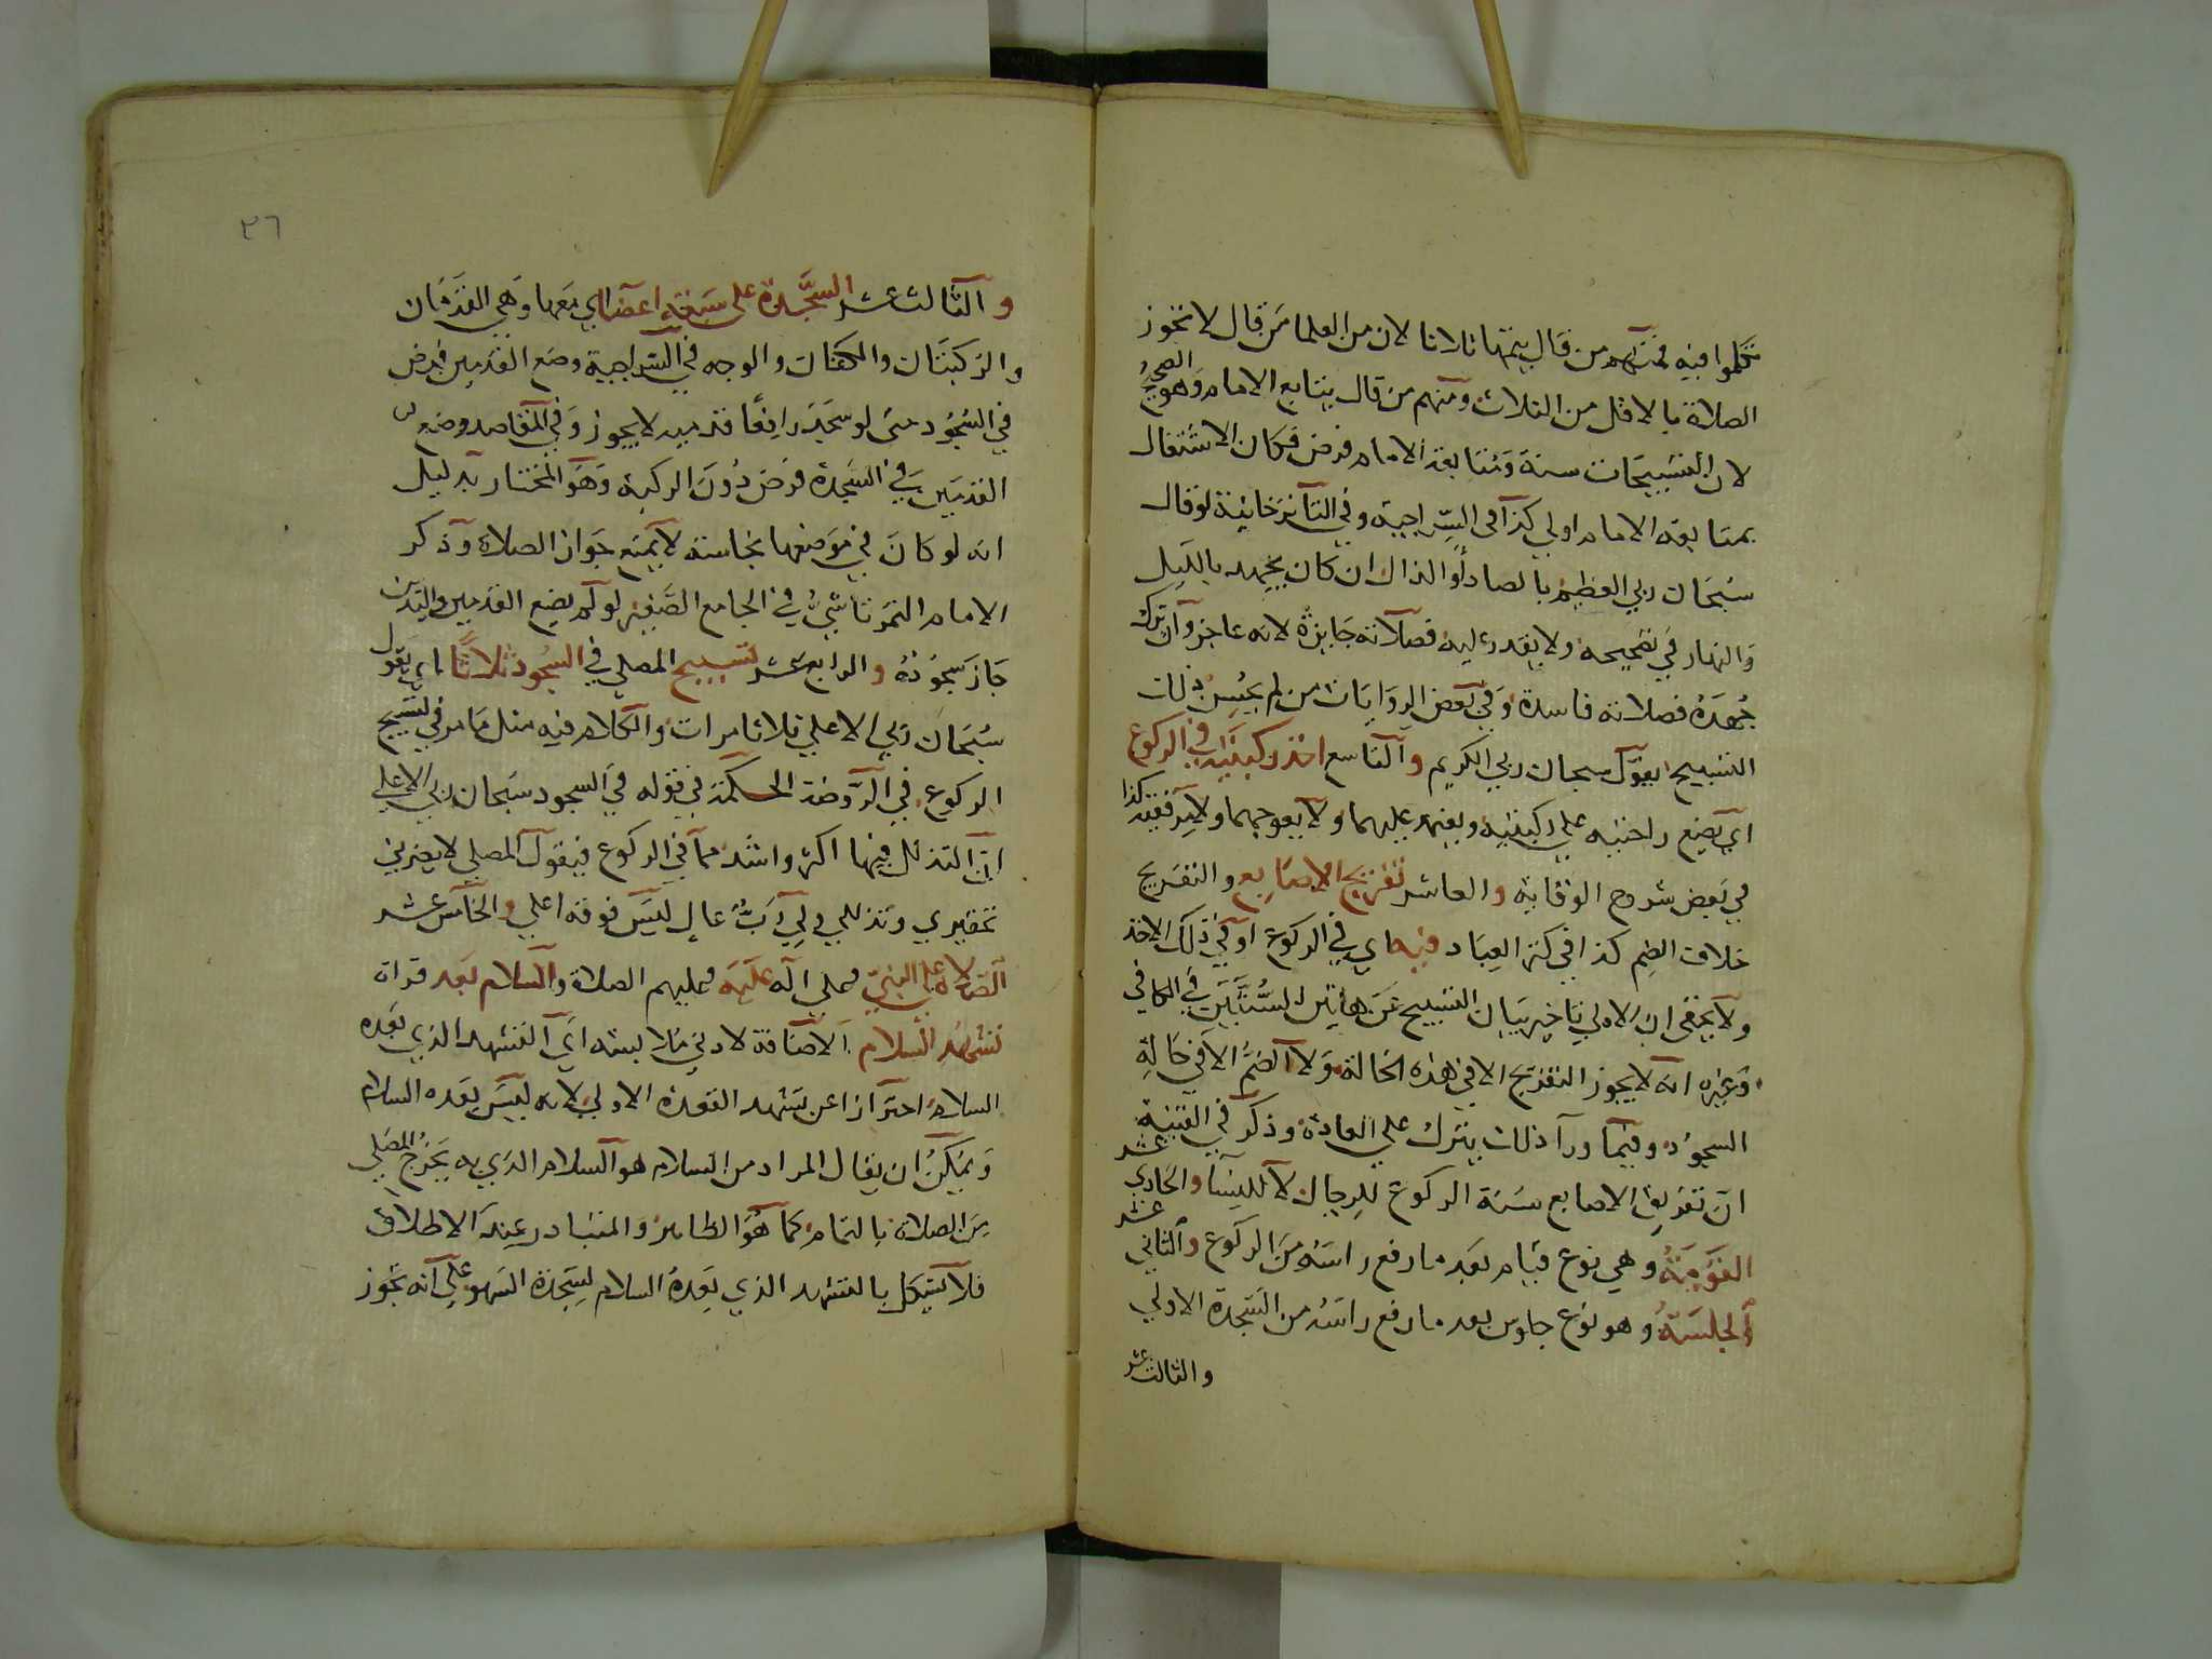 تكلموا فيه فمنهم من قال يتمها ثلاثا لان من العلما من قال لا تجوز
الصلاة بالاقل من الثلاث ومنهم من قال يتابع الامام وهو الصحيح
لان التسبيحات سنة ومتابعة الامام فرض فكان الاشتغال
بمتابعة الامام اولي كذا في السراجية وفي التاترخانية لو قال
سبحان ربي العظيم بالضاد او الذال ان كان يجهد بالليل
والنهار في تصحيحه ولا يقدر عليه فصلاته جايزة لانه عاجز وان ترك
جهده فصلاته فاسدة وفي بعض الروايات من لم يحسن ذلك
التسبيح يقول سبحان ربي الكريم والتاسع اخذ ركبتيه في الركوع
اي يضع راحتيه علي ركبتيه ويعتمد عليهما ولا يعوجهما ولا يرفعهما كذا
في بعض شروح الوقاية والعاشر تفريج الاصابع والتفريج
خلاف الضم كذا في كنز العباد فيه اي في الركوع او في ذلك الاخذ
ولا يخفى ان الاولي تاخير بيان التسبيح عن هاتين السنتين في الكافي
وغيره انه لا يجوز التفريج الا في هذه الحالة ولا الضم الا في حالة
السجود وفيما ورآ ذلك يترك علي العادة وذكر في القنية
ان تفريق الاصابع سنة الركوع للرجال لا للنسآ والحادي عشر
القومة وهي نوع قيام بعد ما رفع راسه من الركوع والثاني عشر
الجلسة وهو نوع جلوس بعد ما رفع راسه من السجدة الاولي
والثالث عشر
٣٦
والثالث عشر السجدة على سبعة اعضا اي معها وهي القدمان
والركبتان والكفان والوجه في السراجية وضع القدمين فرض
في السجود حتى لو سجد رافعا قدميه لا يجوز وفي المقاصد وضع
القدمين في السجدة فرض دون الركبة وهو المختار بدليل
انه لو كان في موضعها نجاسة لا يمنع جواز الصلاة وذكر
الامام التمرتاشي في الجامع الصغير لو لم يضع القدمين واليدين
جاز سجوده والرابع عشر تسبيح المصلي في السجود ثلاثا اي يقول
سبحان ربي الاعلي ثلاثا مرات والكلام فيه مثل ما مر في تسبيح
الركوع في الروضة الحكمة في قوله في السجود سبحان ربي الاعلي
ان التذلل فيها اكثر واشد مما في الركوع فيقول المصلي لا يضرني
تحقيري وتذللي ولي رب عال ليس فوقه اعلي والخامس عشر
الصلاة على النبي وعلي آله عليه وعليهم الصلاة والسلام بعد قراة
تشهد السلام الاضافة لادني ملابسة اي التشهد الذي بعده
السلام احترازا عن تشهد القعدة الاولي لانه ليس بعده السلام
ويمكن ان يقال المراد من السلام هو السلام الذي به يخرج المصلي
من الصلاة بالتمام كما هو الظاهر والمتبادر عند الاطلاق
فلا يشكل بالتشهد الذي بعده السلام لسجدة السهو علي انه تجوز